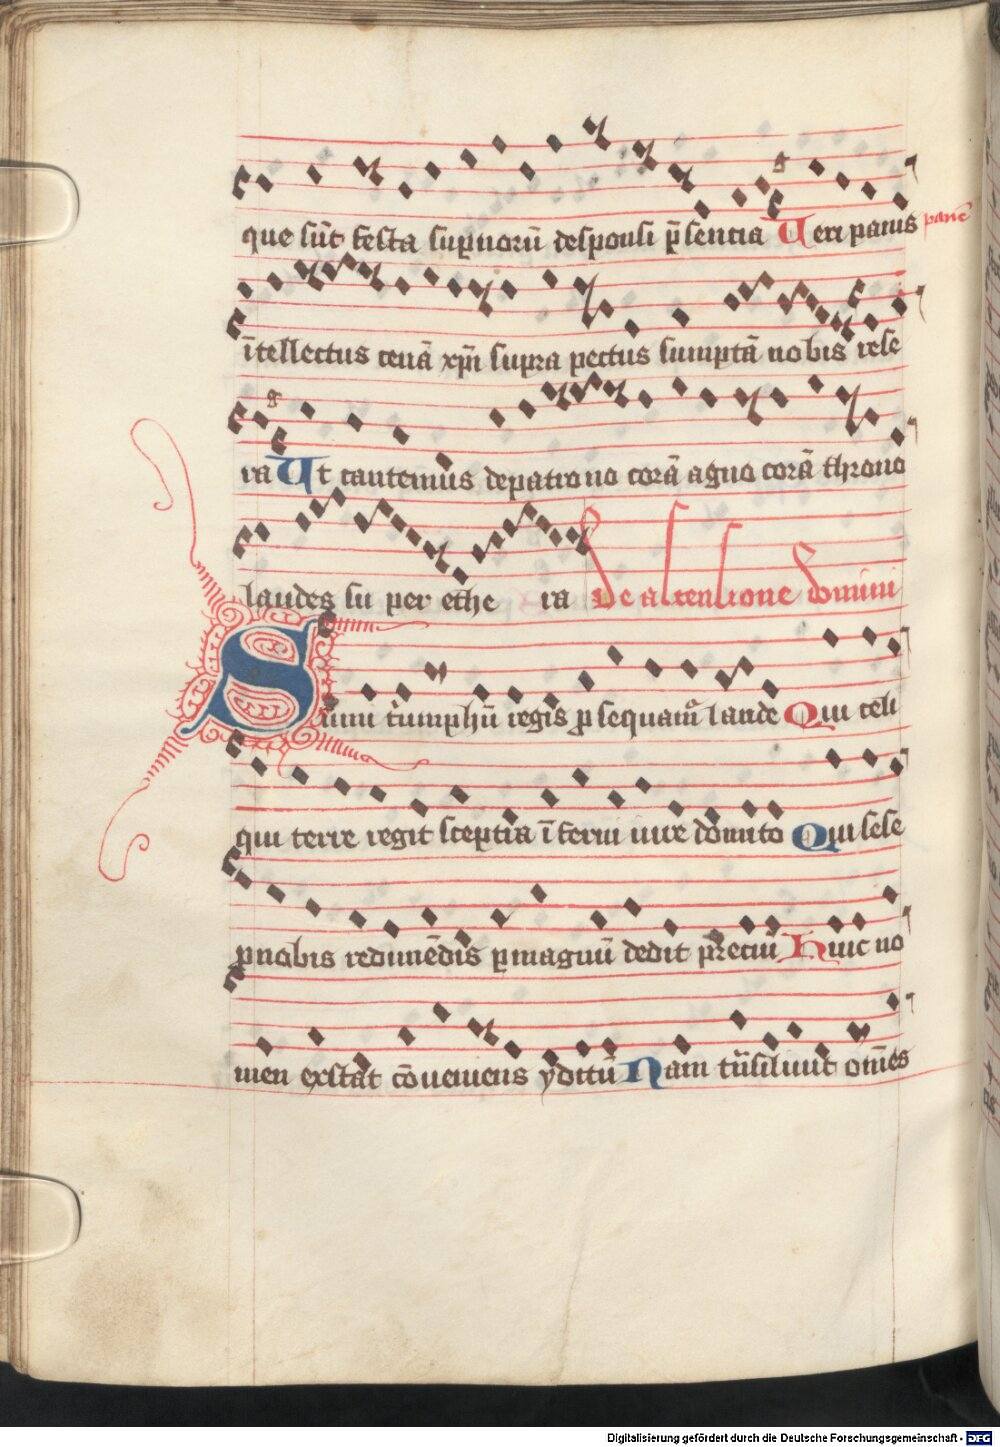 que sūt festa suꝑnorū desponsi p̄sencia Veri panis panē
ītellectus cenā xp̄i supra pectus sumptā nobis rese
ra Ut cantemus depatrono corā agno corā throno
laudes su per ethe ra De ascensione domini
Summi triumphū regis ꝓsequamͬ laude Qui celi
qui terre regit sceptra īferni iure domito Qui sese
ꝓ nobis redimēdis ꝑmagnū dedit preciū Huic no
men exstat cōueniens yditū Nam trāsiliuit om̄es
Digitalisierung gefördert durch die Deutsche Forschungsgemeinschaft - DFG